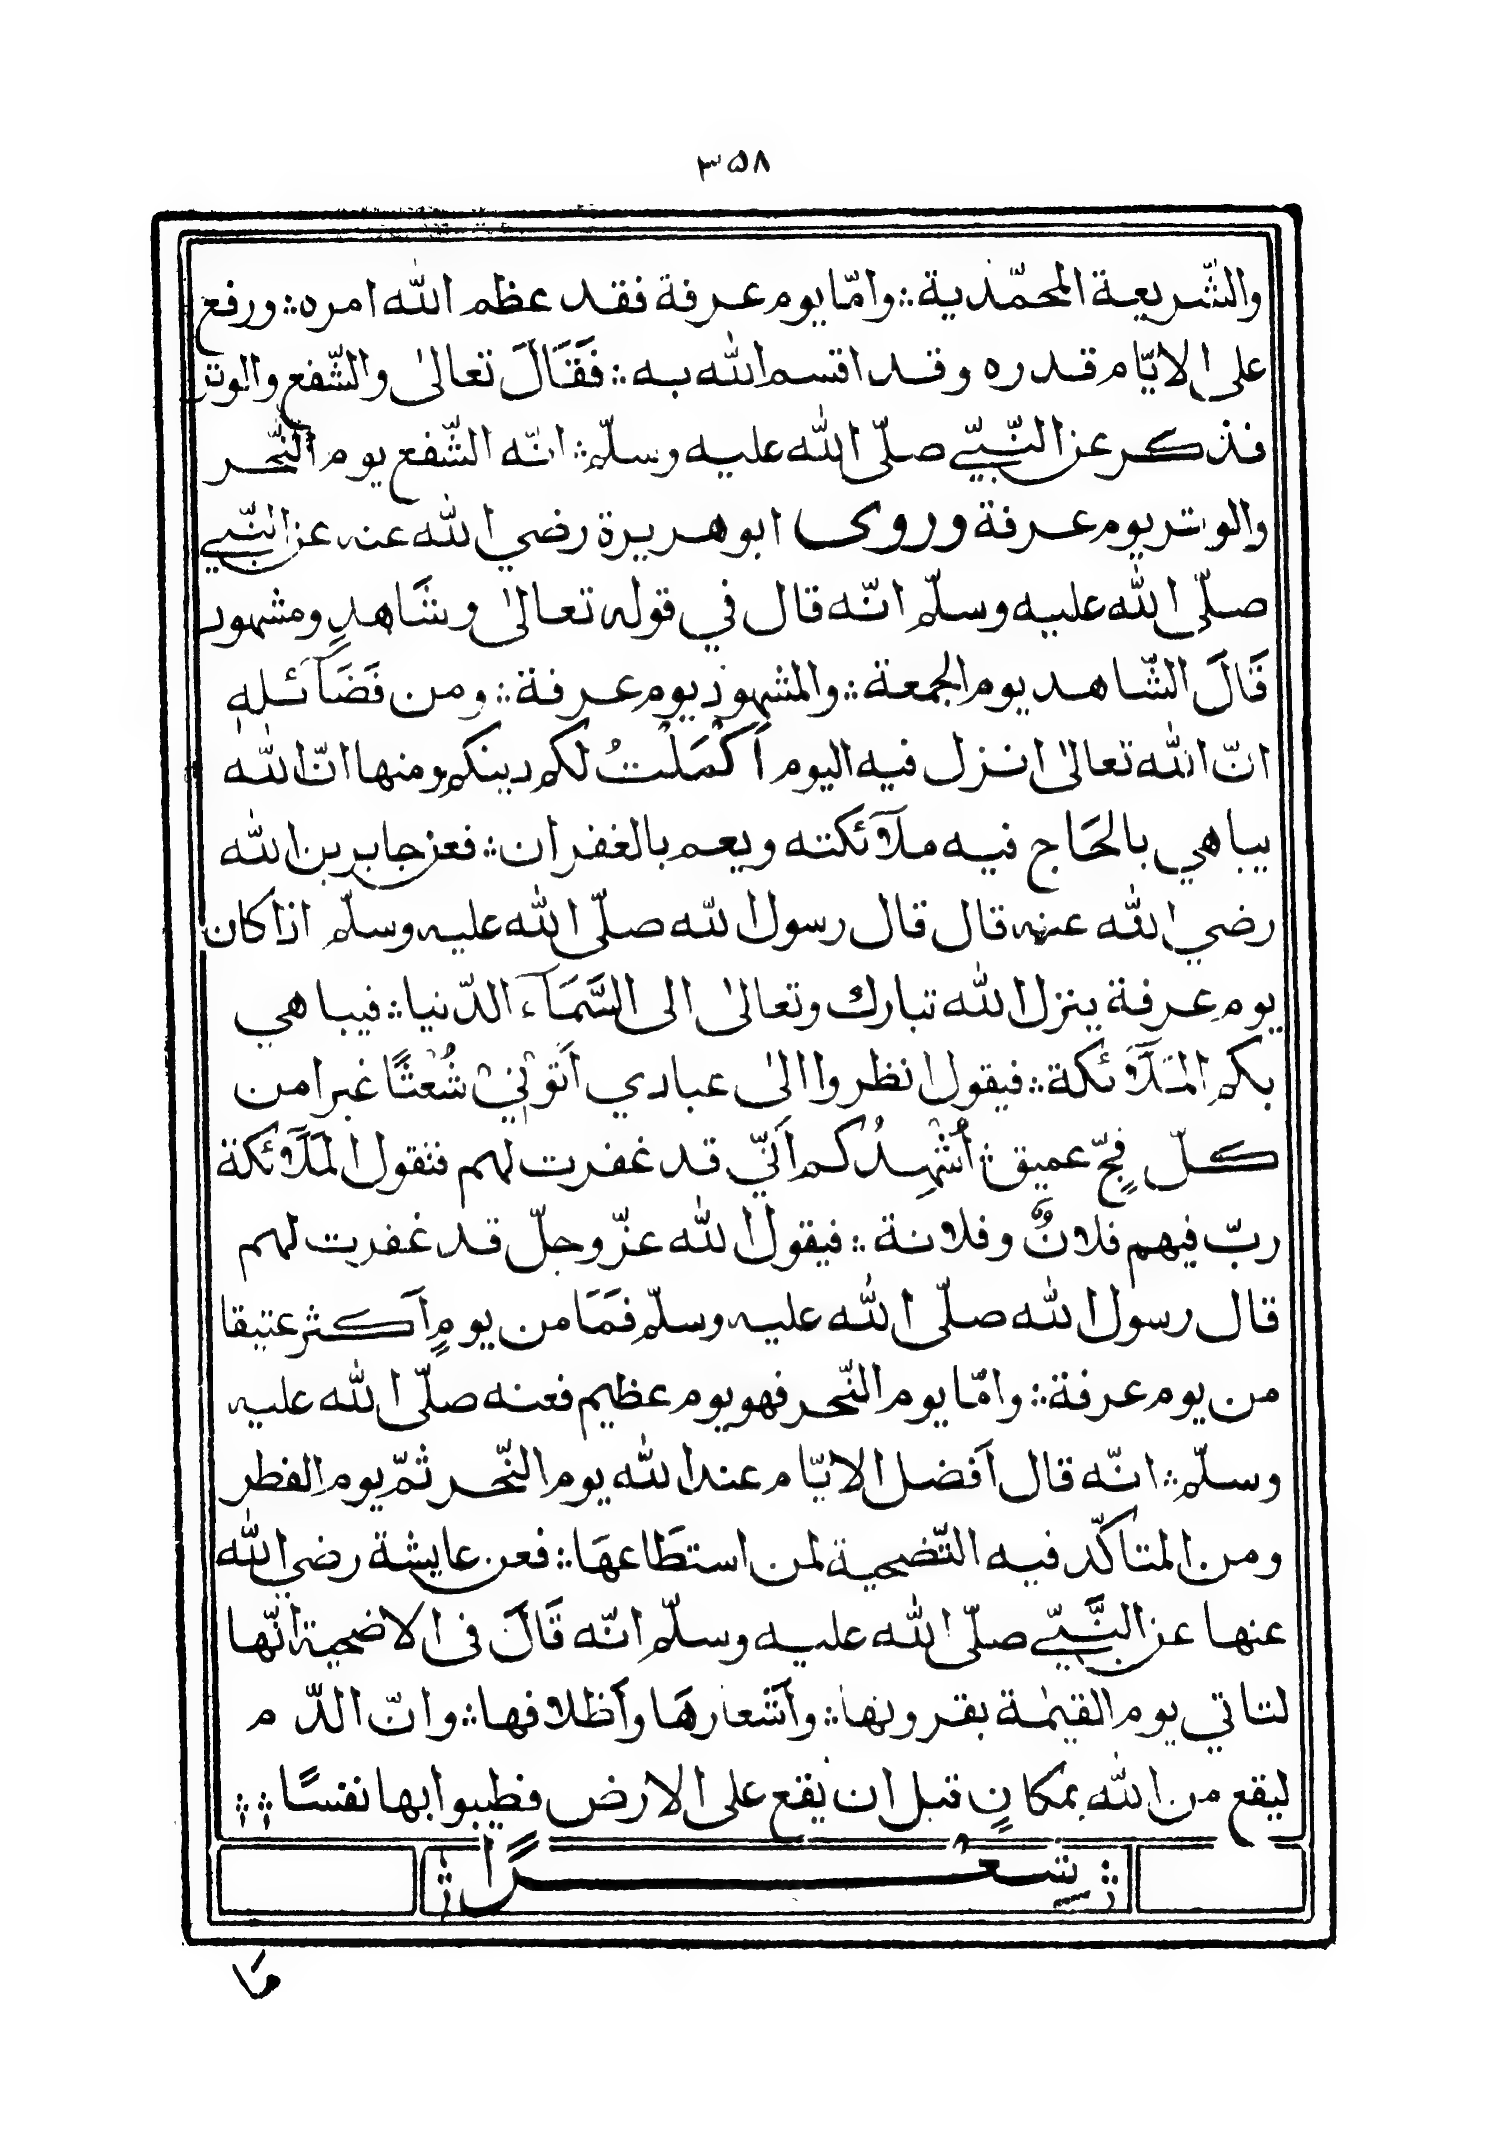 ٣٥٨
والشّريعة المحمّدية ؞ وامّا يوم عرفة فقد عظم الله امره ؞ ورفع
على الايّام قدره وقد اقسم الله به ؞ فَقَالَ تعالىٰ والشّفع والوتر
فذكر عن النّبيّ صلّى الله عليه وسلّم ؞ انّه الشّفع يوم النّحر
والوتر يوم عرفة وروى ابو هريرة رضي الله عنه عن النّبيّ
صلّى الله عليه وسلّم انّه قال في قوله تعالىٰ وشَاهدٍ ومشهود
قَالَ الشّاهد يوم الجمعة ؞ والمشهود يوم عرفة ؞ ومن فَضَآئله
انّ الله تعالىٰ انزل فيه اليوم اَكْمَلْتُ لكم دينكم ومنها انّ الله
يباهي بالحَاج فيه ملآئكته ويعم بالغفران ؞ فعن جابر بن الله
رضي الله عنه قال قال رسول الله صلّى الله عليه وسلّم اذا كان
يوم عرفة ينزل الله تبارك وتعالىٰ الى السَّمَآء الدّنيا ؞ فيباهي
بكم المَلَآئكة ؞ فيقول انظروا الىٰ عبادي اَتَوْنِيْ شُعْثًا غبرا من
كلّ فجٍّ عميق ؞ اُشْهِدُكم اَنّي قد غفرت لهم فتقول المَلَآئكة
ربّ فيهم فلانٌ وفلانة ؞ فيقول الله عزّ وجلّ قد غفرت لهم
قال رسول الله صلّى الله عليه وسلّم فَمَا من يومٍ اَكثر عتيقا
من يوم عرفة ؞ وامّا يوم النّحر فهو يوم عظيم فعنه صلّى الله عليه
وسلّم ؞ انّه قال اَفضل الايّام عند الله يوم النّحر ثمّ يوم الفطر
ومن المتاكّد فيه التّضحية لمن استطَاعهَا ؞ فعن عايشة رضي الله
عنها عن النَّبيّ صلّى الله عليه وسلّم انّه قَالَ فى الاضحية انّها
لتاتي يوم القيٰمة بقرونها ؞ واَشعارهَا واَظلافها ؞ وانّ الدّم
ليقع من الله بمكانٍ قبل ان يقع على الارض فطيبوا بها نفسًا ؞؞
؞ شِعْرًا ؞
مَا